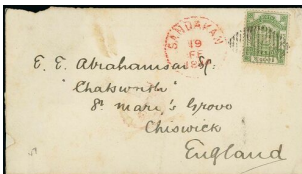 SANDAKAN
19
FE
E. E. Abrahamson Esq.
"Chatsworth"
St Mary's Grove
Chiswick
England